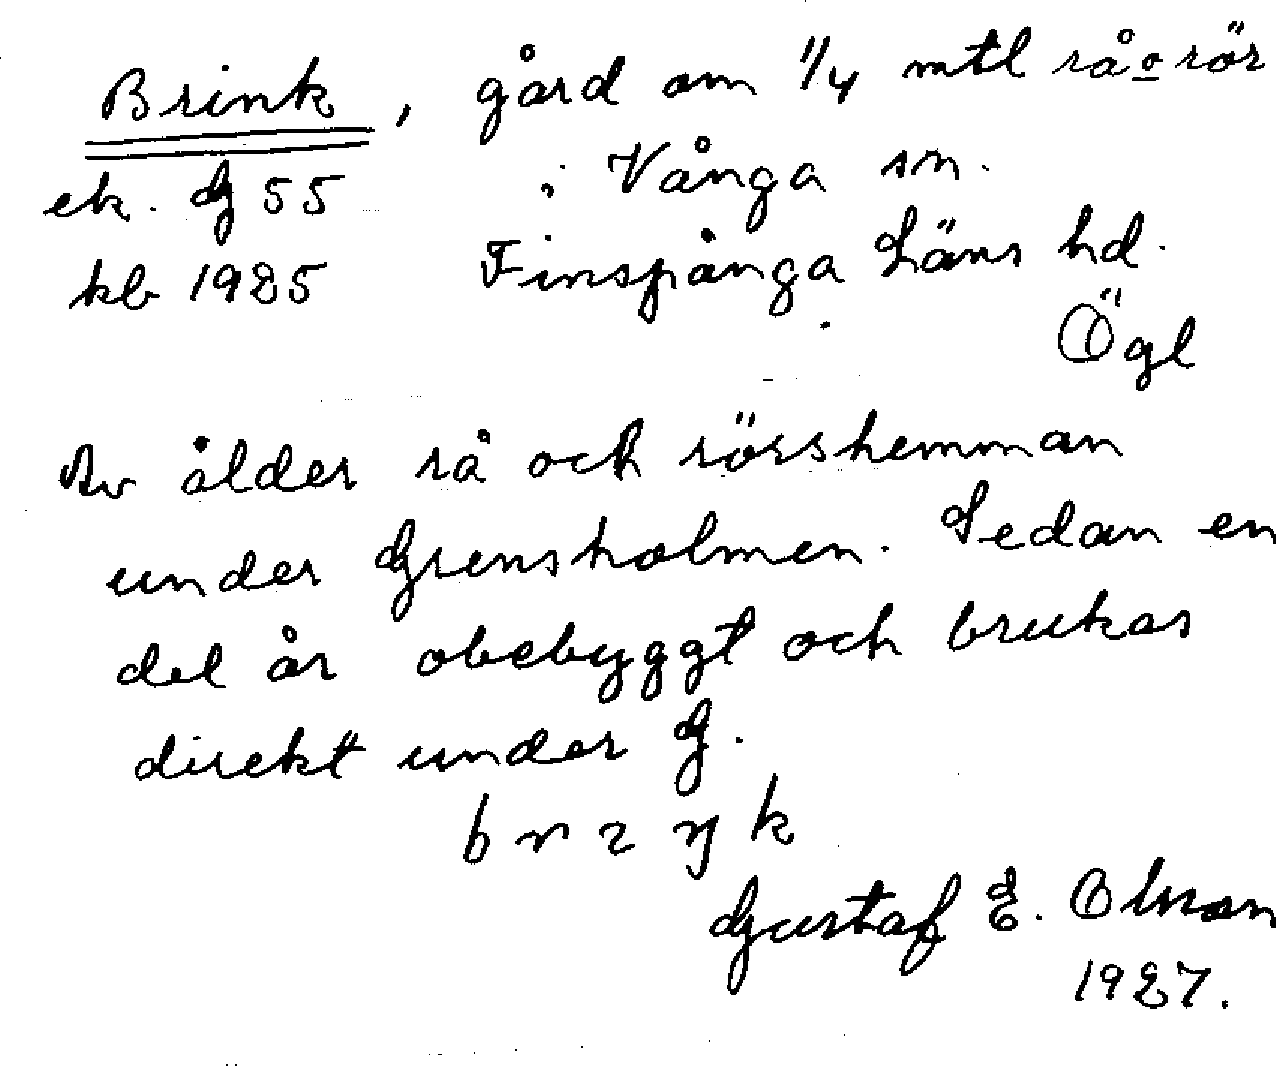 Brink, gård om 1/4 mtl rå o rör
ek. G 55 i Vånga sn.
kb 1925 Finspånga Läns hd.
Ögl
Av ålder rå och rörshemman
under Grensholmen. Sedan en
del år obebyggt och brukas
direkt under G.
Gustaf E. Olsson
1927.